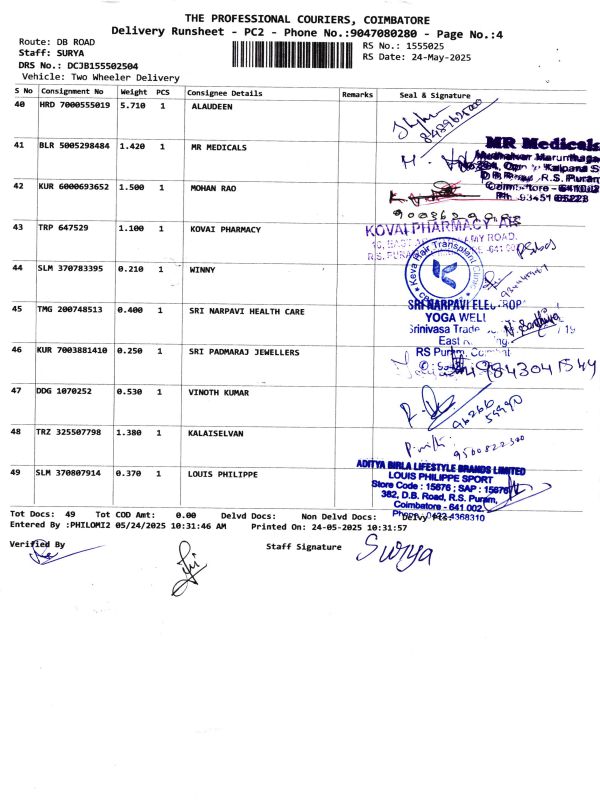 THE PROFESSIONAL COURIERS, COIMBATORE
Delivery Runsheet - PC2 - Phone No.:9047080280 - Page No.:4
Route: DB ROAD
RS No.: 1555025
Staff: SURYA
RS Date: 24-May-2025
DRS No.: DCJB155502504
Vehicle: Two Wheeler Delivery
S No Consignment No Weight PCS Consignee Details Remarks Seal & Signature
40 HRD 7000555019 5.710 1 ALAUDEEN
41 BLR 5005298484 1.420 1 MR MEDICALS
MR Medicals
R.S. Puram
42 KUR 6000693652 1.500 1 MOHAN RAO
43 TRP 647529 1.100 1 KOVAI PHARMACY
KOVAI PHARMACY
44 SLM 370783395 0.210 1 WINNY
Keva Hair Transplant Clinic
45 TMG 200748513 0.400 1 SRI NARPAVI HEALTH CARE
SRI NARPAVI
YOGA WELL
Srinivasa Trade
46 KUR 7003881410 0.250 1 SRI PADMARAJ JEWELLERS
RS Puram,
47 DDG 1070252 0.530 1 VINOTH KUMAR
48 TRZ 325507798 1.380 1 KALAISELVAN
49 SLM 370807914 0.370 1 LOUIS PHILIPPE
ADITYA BIRLA LIFESTYLE BRANDS LIMITED
LOUIS PHILIPPE SPORT
Store Code : 15676 ; SAP : 15676
382, D.B. Road, R.S. Puram,
Coimbatore - 641 002.
Tot Docs: 49 Tot COD Amt: 0.00 Delvd Docs: Non Delvd Docs:
Entered By :PHILOMI2 05/24/2025 10:31:46 AM Printed On: 24-05-2025 10:31:57
Verified By
Staff Signature Surya